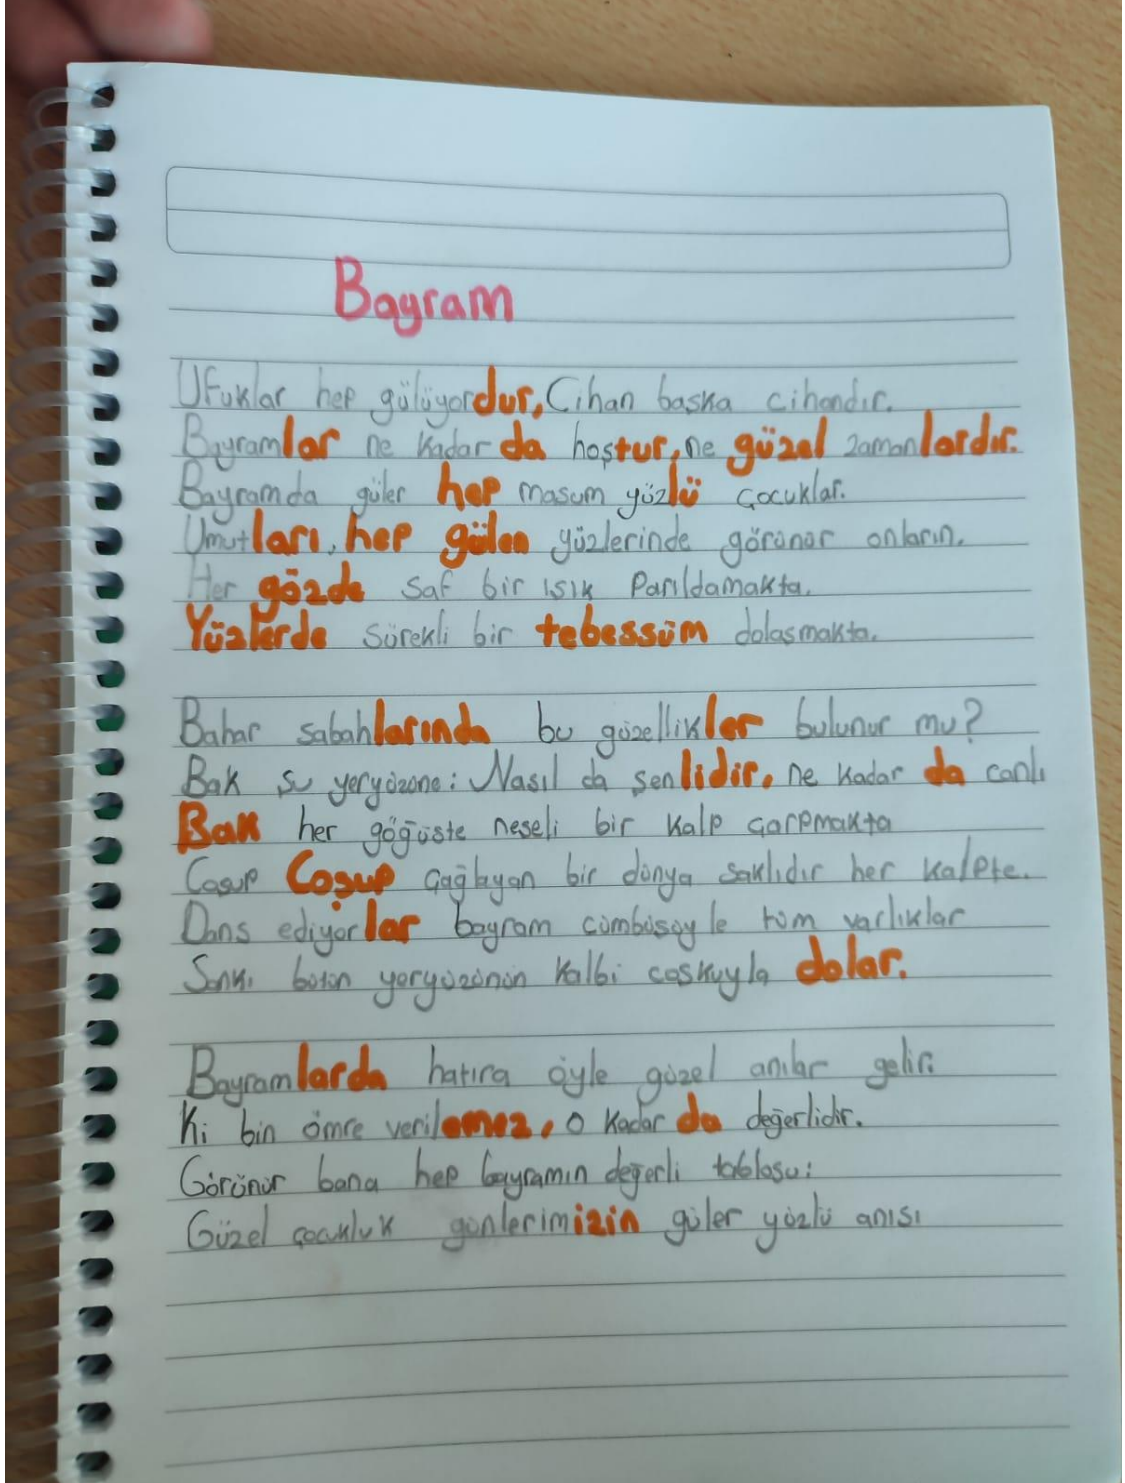 Bayram
Ufuklar hep gülüyordur, Cihan baska cihandır.
Bayramlar ne kadar da hoştur, ne güzel zamanlardır.
Bayramda güler hep masum yüzlü çocuklar.
Umutları, hep gülen yüzlerinde görünür onların.
Her gözde saf bir ışık Parıldamakta.
Yüzlerde sürekli bir tebessüm dolasmakta.
Bahar sabahlarında bu güzellikler bulunur mu?
Bak şu yeryüzüne: Nasıl da şenlidir, ne kadar da canlı
Bak her göğüste neseli bir kalp çarpmakta
Cosup Coşup çağlayan bir dünya saklıdır her kalpte.
Dans ediyorlar bayram cümbüsüyle tüm varlıklar
Sanki bütün yeryüzünün kalbi coskuyla dolar.
Bayramlarda hatıra öyle güzel anılar gelir:
Ki bin ömre verilemez, o kadar da değerlidir.
Görünür bana hep bayramın değerli tablosu:
Güzel çocukluk günlerimizin güler yüzlü anısı